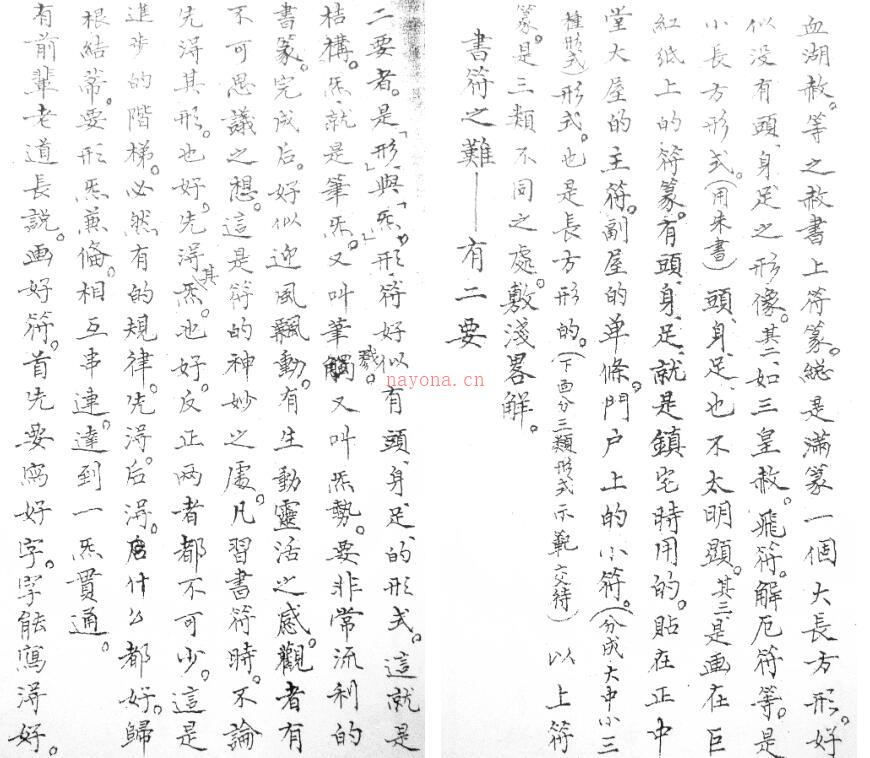 血湖赦。等之赦書上符篆。總是滿篆一個大長方形。好
似没有頭、身、足之形像。其二、如三皇赦。飛符。解厄符等。是
小長方形式。(用朱書)頭、身、足、也不太明顯。其三、是画在巨
紅纸上的符篆。有頭、身、足、就是鎮宅時用的。貼在正中
堂大屋的主符。副屋的单條。門户上的小符。(分成大中小三
種形式)形式。也是長方形的。(下面分三類形式示範交待)以上符
篆。是三類不同之處。敷淺畧解。
書符之難——有二要
二要者。是「形」與「炁」形、符好似有頭、身、足、的形式。這就是
桔構。炁、就是筆炁。又叫筆觸戮。又叫炁勢。要非常流利的
書篆。完成后。好似迎風飄動。有生動靈活之感。觀者有
不可思議之想。這是符的神妙之處。凡習書符時。不論
先淂其形。也好。先淂其炁。也好。反正两者都不可少。這是
進步的階梯。必然有的規律。先淂。后淂。什么都好。歸
根結蒂。要形炁兼俻。相互串連。達到一炁貫通。
有前輩老道長説。画好符。首先要寫好字。字能寫淂好。
nayona.cn